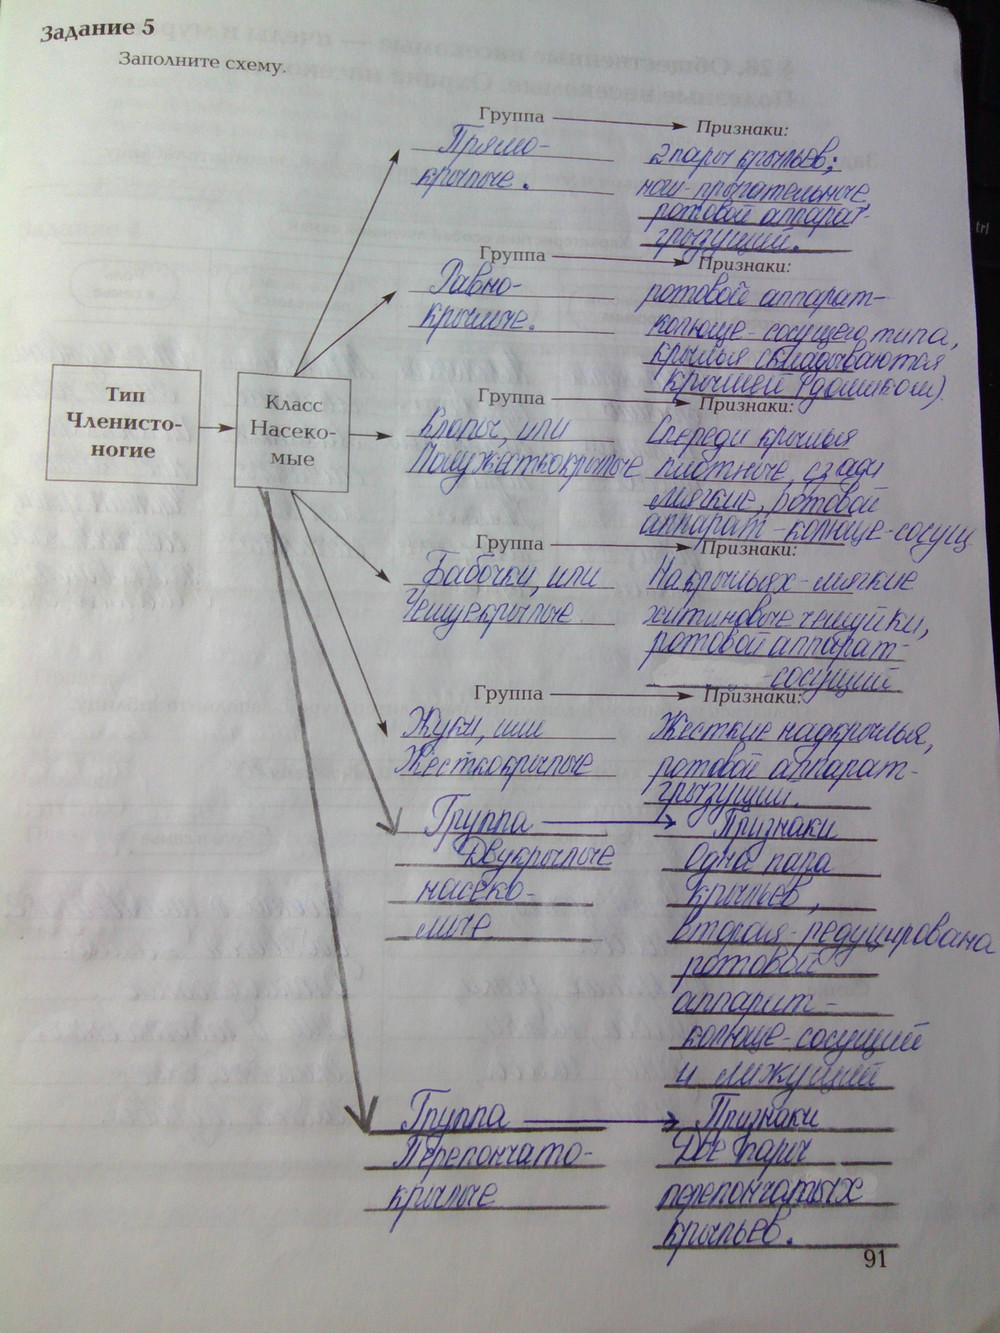 Задание 5
Заполните схему.
Группа Признаки:
Прямо- 2 пары крыльев;
крылые. наш-прыгательные
ротовой аппарат-
грызущий.
Группа Признаки:
Равно- ротовой аппарат-
крылые. колюще-сосущего типа,
крылья складываются
крышей (домиком).
Тип
Членисто-
ногие
Класс
Насеко-
мые
Группа Признаки:
Клопы, или Спереди крылья
Полужесткокрылые плотные, сзади
мягкие, ротовой
аппарат-колюще-сосущ
Группа Признаки:
Бабочки, или На крыльях-мягкие
Чешуекрылые хитиновые чешуйки,
ротовой аппарат-
-сосущий
Группа Признаки:
Жуки, или Жесткие надкрылья,
Жесткокрылые ротовой аппарат-
грызущий.
Группа Признаки
Двукрылые Одна пара
насеко- крыльев,
мые вторая-редуцирована
ротовой
аппарат-
колюще-сосущий
и лижущий
Группа Признаки
Перепончато- Две пары
крылые перепончатых
крыльев.
91